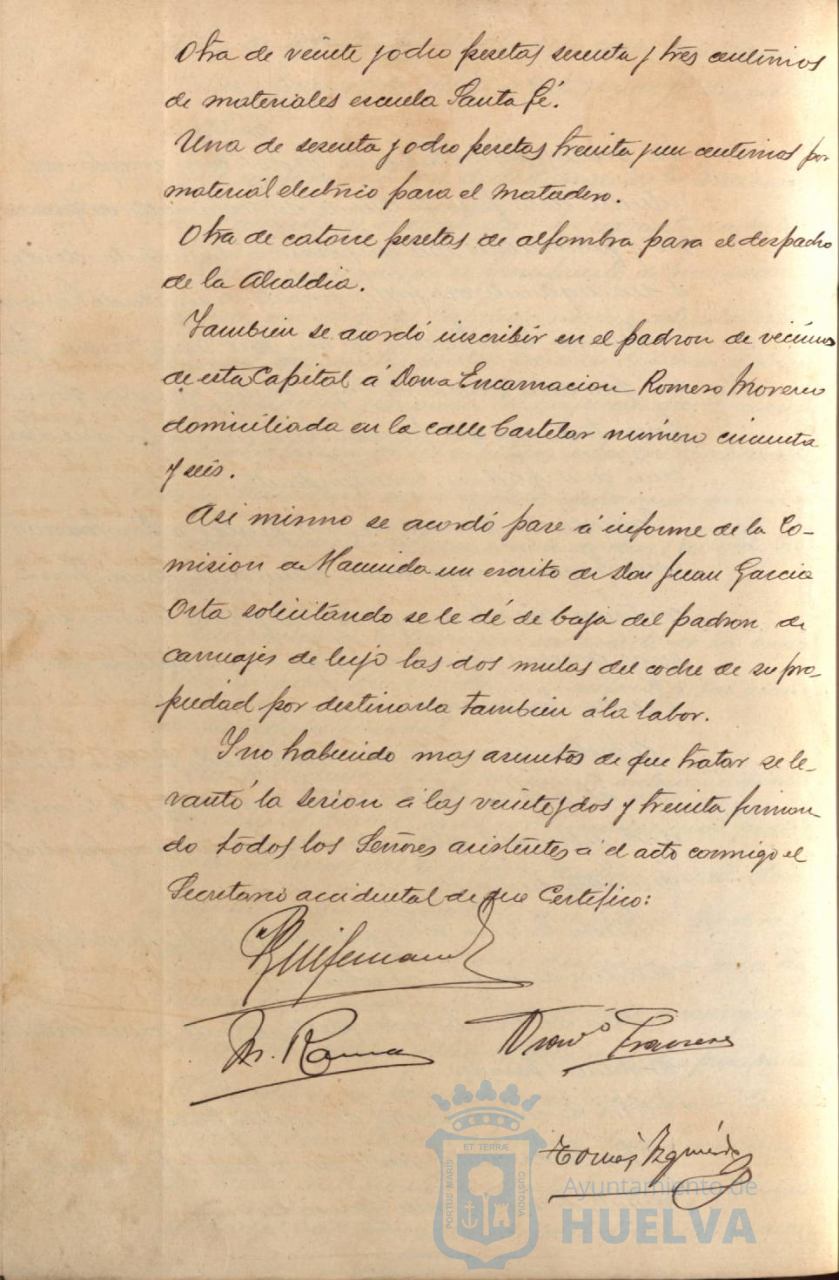 Otra de veinte y ocho pesetas sesenta y tres centimos
de materiales escuela Santa Fé.
Una de sesenta y ocho pesetas treinta y un centimos por
material electrico para el Matadero.
Otra de catorce pesetas de alfombra para el despacho
de la Alcaldia.
Tambien se acordó inscribir en el padron de vecinos
de esta Capital á Doña Encarnacion Romero Moreno
domiciliada en la calle Castelar numero cincuenta
y seis.
Asi mismo se acordó pase á informe de la Co-
mision de Hacienda un escrito de Don Juan Garcia
Orta solicitando se le dé de baja del padron de
carruajes de lujo las dos mulas del coche de su pro-
piedad por destinarla tambien á la labor.
Y no habiendo mas asuntos de que tratar se le-
vantó la sesion á las veinte y dos y treinta firman-
do todos los Señores asistentes á el acto conmigo el
Secretario accidental de que Certifico:
M. Rama
Tomás Izquierdo
ET TERRÆ
PORTUS MARIS
CUSTODIA
Ayuntamiento de
HUELVA